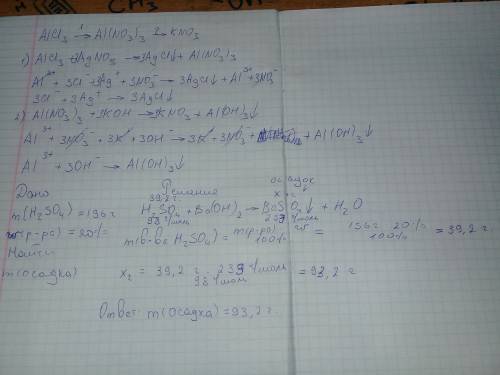 AlCl₃ →¹ Al(NO₃)₃ →² KNO₃
1) AlCl₃ + 3AgNO₃ → 3AgCl↓ + Al(NO₃)₃
Al³⁺ + 3Cl⁻ + 3Ag⁺ + 3NO₃⁻ → 3AgCl↓ + Al³⁺ + 3NO₃⁻
3Cl⁻ + 3Ag⁺ → 3AgCl↓
2) Al(NO₃)₃ + 3KOH → 3KNO₃ + Al(OH)₃↓
Al³⁺ + 3NO₃⁻ + 3K⁺ + 3OH⁻ → 3K⁺ + 3NO₃⁻ + Al(OH)₃↓
Al³⁺ + 3OH⁻ → Al(OH)₃↓
Дано Решение осадок
39,2 г x г
m(H₂SO₄) = 196 г H₂SO₄ + Ba(OH)₂ → BaSO₄↓ + H₂O
98 г/моль 233 г/моль
w(р-ра) = 20% m(в-ва H₂SO₄) = m(р-ра) · w / 100% = 196 г · 20% / 100% = 39,2 г
Найти
m(осадка) x₂ = 39,2 г · 233 г/моль / 98 г/моль = 93,2 г
Ответ m(осадка) = 93,2 г.